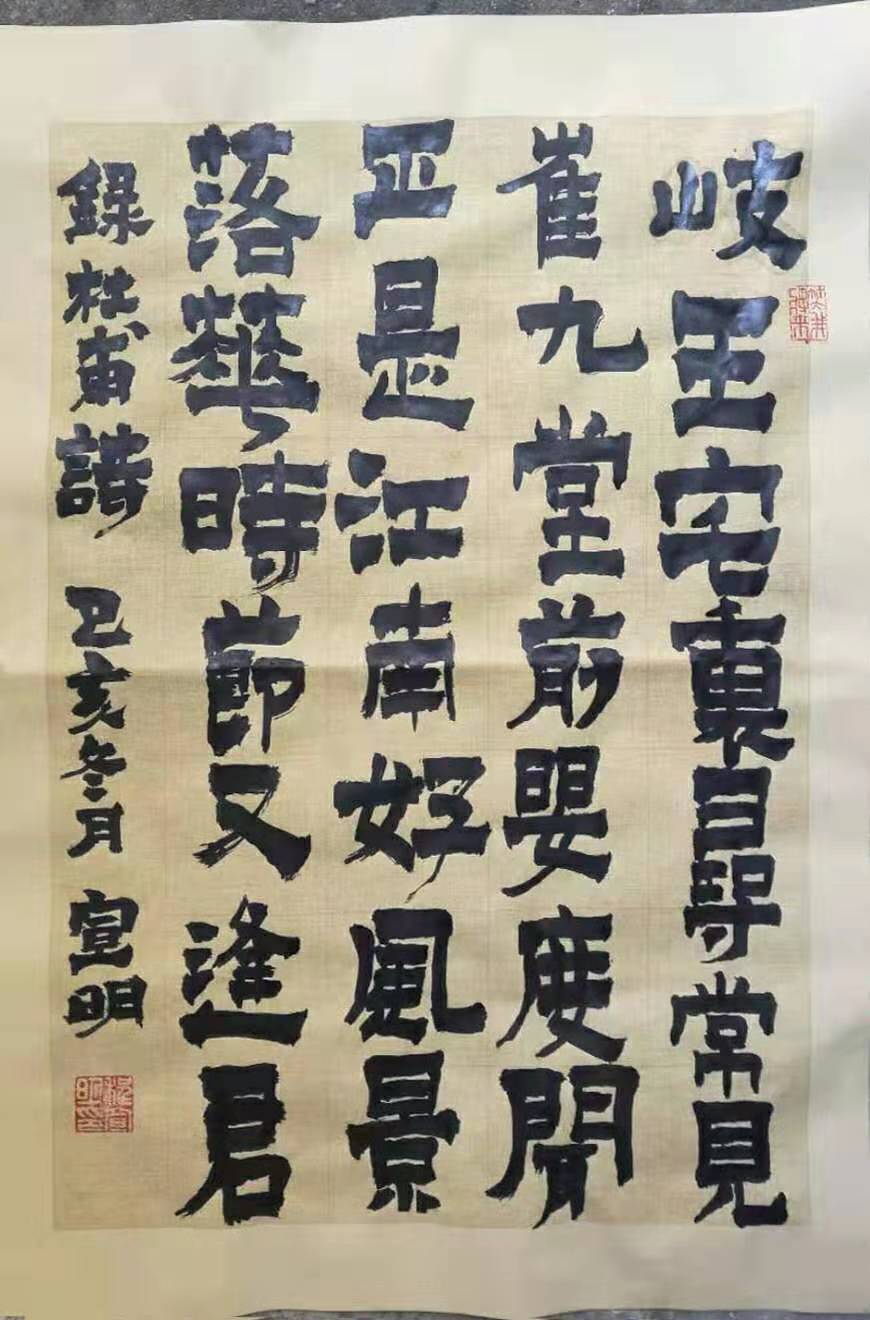 岐王宅裏尋常見
崔九堂前幾度聞
正是江南好風景
落華時節又逢君
錄杜甫詩 己亥冬月 宣明